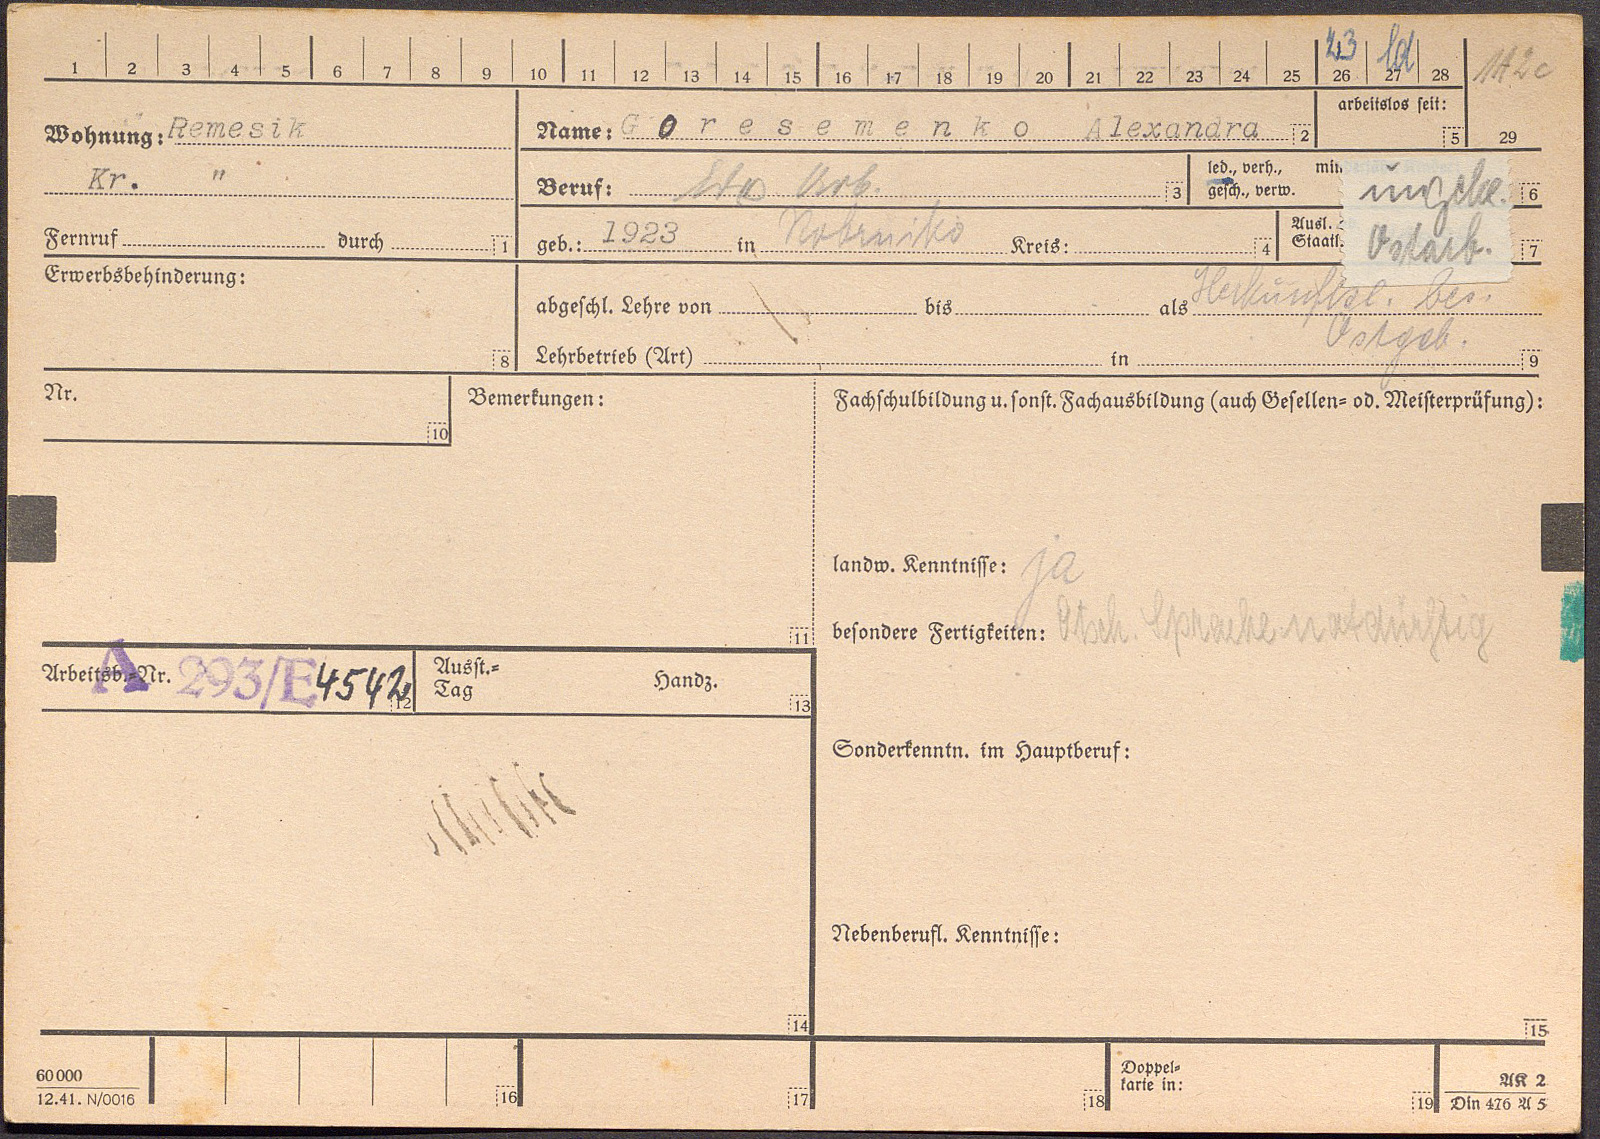 1 2 3 4 5 6 7 8 9 10 11 12 13 14 15 16 17 18 19 20 21 22 23 24 25 26 27 28
23 ld 1A2c
arbeitslos seit:
5 29
Wohnung: Remesik
Name: Goresemenko Alexandra 2
Kr. "
Beruf: Arb. 3
led., verh.,
gesch., verw.
ungel. 6
Fernruf durch 1
geb.: 1923 in Kreis: 4
Ausl.
Staatl.
Ostarb. 7
Erwerbsbehinderung: 8
abgeschl. Lehre von bis als
Herkunftsl. bes.
Ostgeb.
Lehrbetrieb (Art) in 9
Nr. 10
Bemerkungen: 11
Fachschulbildung u. sonst. Fachausbildung (auch Gesellen- od. Meisterprüfung):
landw. Kenntnisse: ja
besondere Fertigkeiten: Dtsch. Sprache notdürftig
Arbeitsb.-Nr. A 293/E 4542 12
Ausst.-
Tag
Handz. 13
Sonderkenntn. im Hauptberuf:
Nebenberufl. Kenntnisse:
14 15
60000
12.41. N/0016
16 17 18
Doppel-
karte in: 19
AK 2
Din 476 A 5